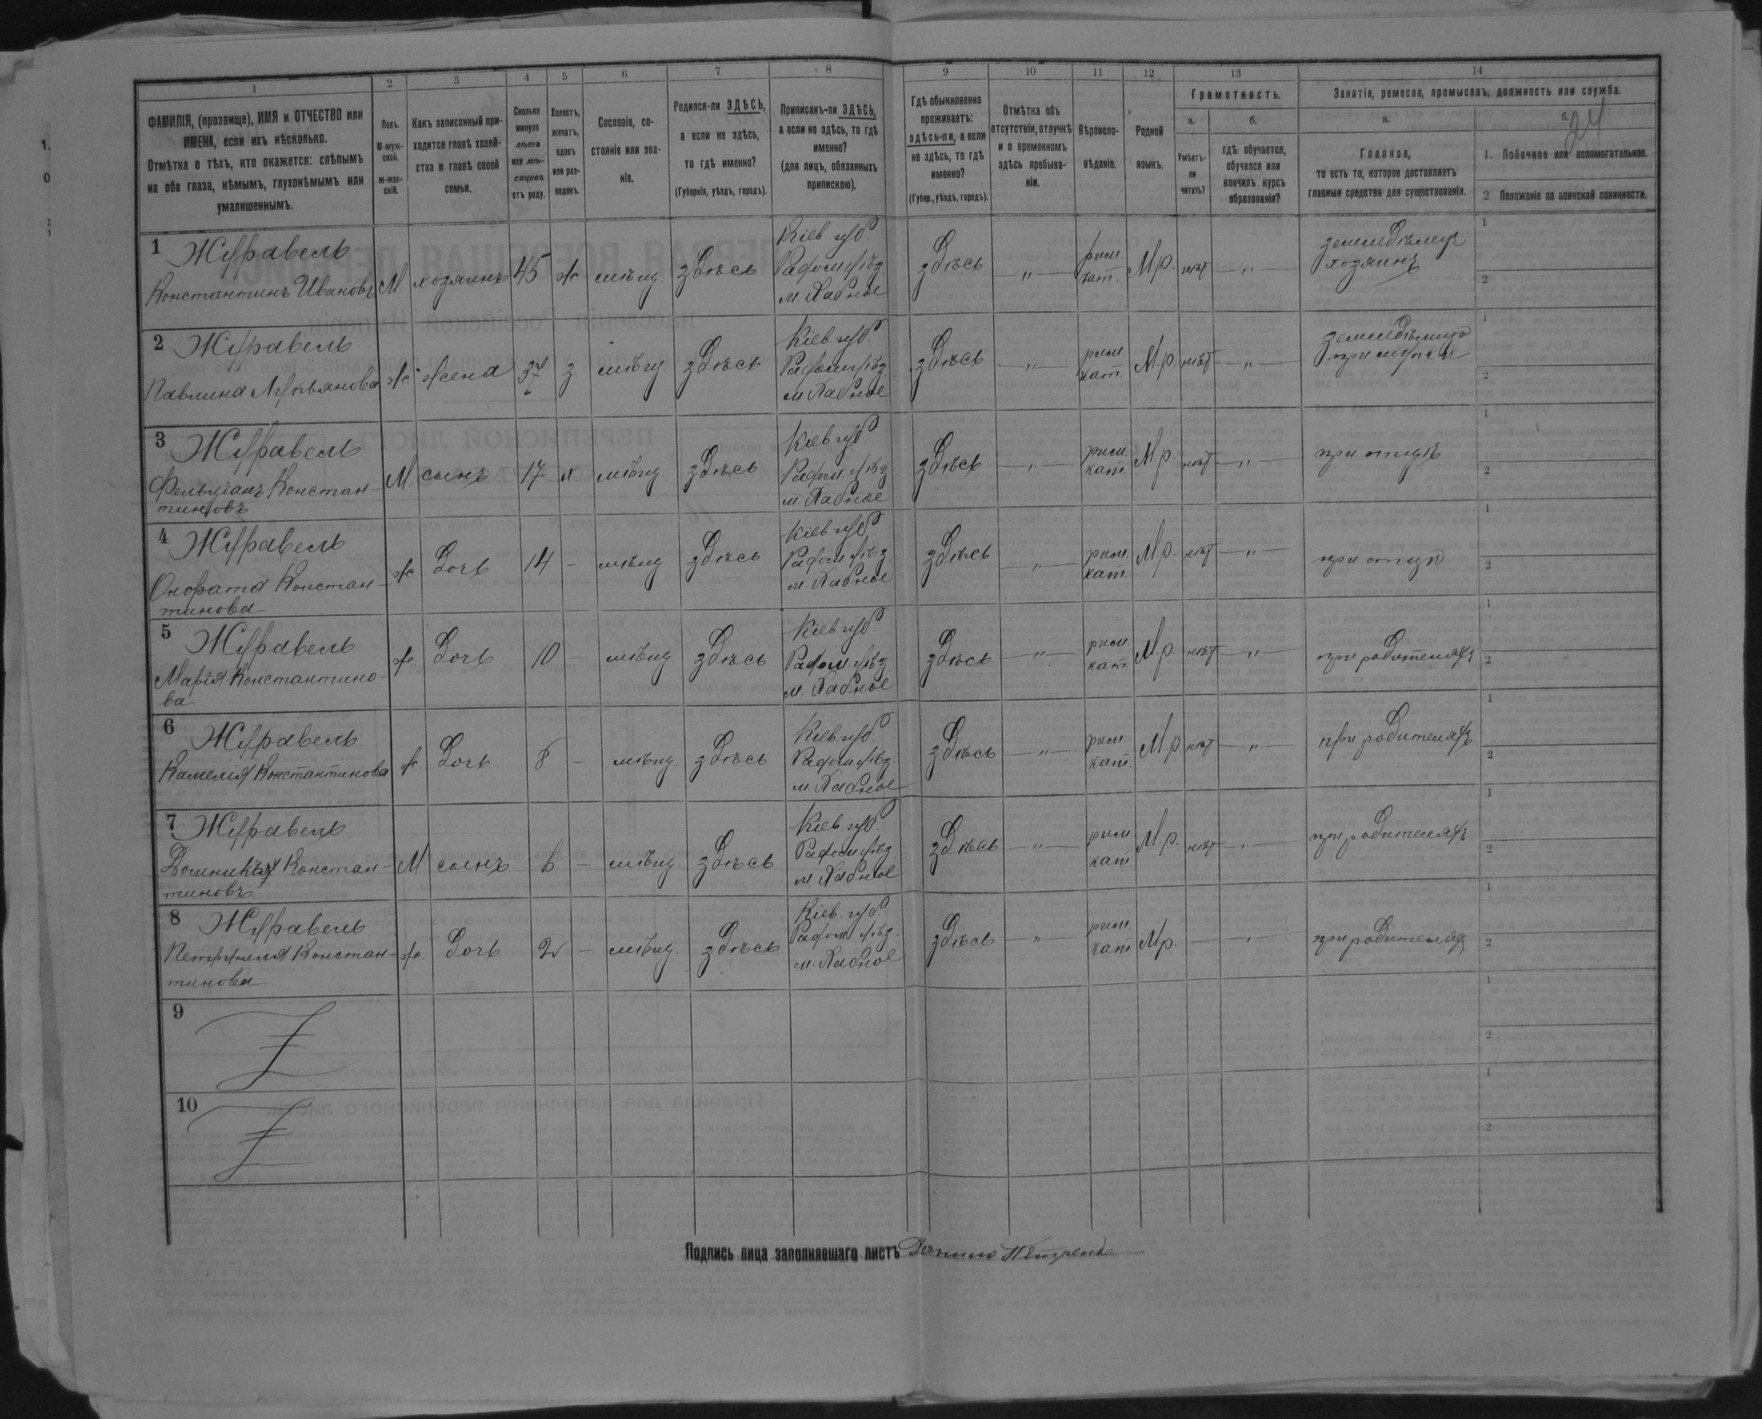 1 2 3 4 5 6 7 8 9 10 11 12 13 14
ФАМИЛІЯ, (прозвище), ИМЯ и ОТЧЕСТВО или
ИМЕНА, если ихъ нѣсколько.
Отмѣтка о тѣхъ, кто окажется: слѣпымъ
на оба глаза, нѣмымъ, глухонѣмымъ или
умалишеннымъ.
Полъ.
М-муж-
ской.
ж-жен-
скій.
Какъ записанный при-
ходится главѣ хозяй-
ства и главѣ своей
семьи.
Сколько
минуло
лѣтъ
или мѣ-
сяцевъ
отъ роду.
Холостъ,
женатъ,
вдовъ
или раз-
веденъ.
Сословіе, со-
стояніе или зва-
ніе.
Родился-ли ЗДѢСЬ,
а если не здѣсь,
то гдѣ именно?
(Губернія, уѣздъ, городъ).
Приписанъ-ли ЗДѢСЬ,
а если не здѣсь, то гдѣ
именно?
(для лицъ, обязанныхъ
припискою).
Гдѣ обыкновенно
проживаетъ:
здѣсь-ли, а если
не здѣсь, то гдѣ
именно?
(Губер., уѣздъ, городъ).
Отмѣтка объ
отсутствіи, отлучкѣ
и о временномъ
здѣсь пребыва-
ніи.
Вѣроиспо-
вѣданіе.
Родной
языкъ.
Грамотность.
а.
Умѣетъ-
ли
читать?
б.
гдѣ обучается,
обучался или
кончилъ курсъ
образованія?
Занятіе, ремесло, промыселъ, должность или служба.
а.
Главное,
то есть то, которое доставляетъ
главныя средства для существованія.
б.
24
1. Побочное или вспомогательное.
2 Положеніе по воинской повинности.
1 Журавель
Константинъ Ивановъ
М хозяинъ 45 ж мѣщ. здѣсь
Кіев. губ.
Радом. уѣз.
м. Хабное
здѣсь „
рим.
кат.
М.р. нѣт „
земледѣлецъ
хозяинъ
1
2
2 Журавель
Павлина Лукьянова
ж жена 37 з мѣщ. здѣсь
Кіев. губ.
Радом. уѣз
м Хабное
здѣсь „
рим.
кат.
М.р. нѣт „
при мужѣ
1
2
3 Журавель
Фельціанъ Констан-
тиновъ
М сынъ 17 х мѣщ. здѣсь
Кіев. губ.
Радом. уѣз
м. Хабное
здѣсь „
рим
кат.
М.р. нѣт „
при отцѣ
1
2
4 Журавель
Онората Констан-
тинова
ж Дочь 14 - мѣщ здѣсь
Кіев. губ
Радом. уѣз
м. Хабное
здѣсь „
рим.
кат.
М.р. нѣт „
при отцѣ
1
2
5 Журавель
Марія Константино-
ва
ж Дочь 10 - мѣщ. здѣсь
Кіев губ
Радом. уѣз
м. Хабное
здѣсь „
рим.
кат.
М.р. нѣт „
при родителяхъ
1
2
6 Журавель
Камелія Константинова
ж. Дочь 8 - мѣщ. здѣсь
Кіев. губ.
Радом. уѣз.
м. Хабное
здѣсь „
рим.
кат.
М.р. нѣт „
при родителяхъ
1
2
7 Журавель
Констан-
тиновъ
М сынъ 6 - мѣщ. здѣсь
Кіев. губ.
Радом. уѣз.
м Хабное
здѣсь „
рим
кат
М.р. нѣт „
при родителяхъ
1
2
8 Журавель
Петрунеля Констан-
тинова
ж. Дочь 2 - мѣщ. здѣсь
Кіев. губ.
Радом. уѣз.
м. Хабное
здѣсь „
рим.
кат
М.р. - „
при родителяхъ
1
2
9
1
2
10
1
2
Подпись лица заполнявшаго листъ